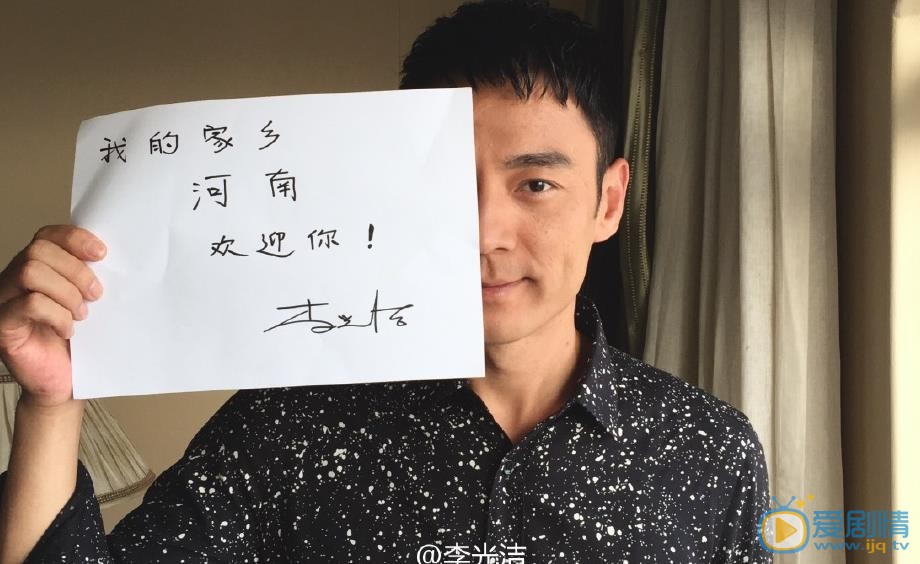 我的家乡
河南
欢迎你！
李光洁
@李光洁
爱剧情
www.ijq.tv